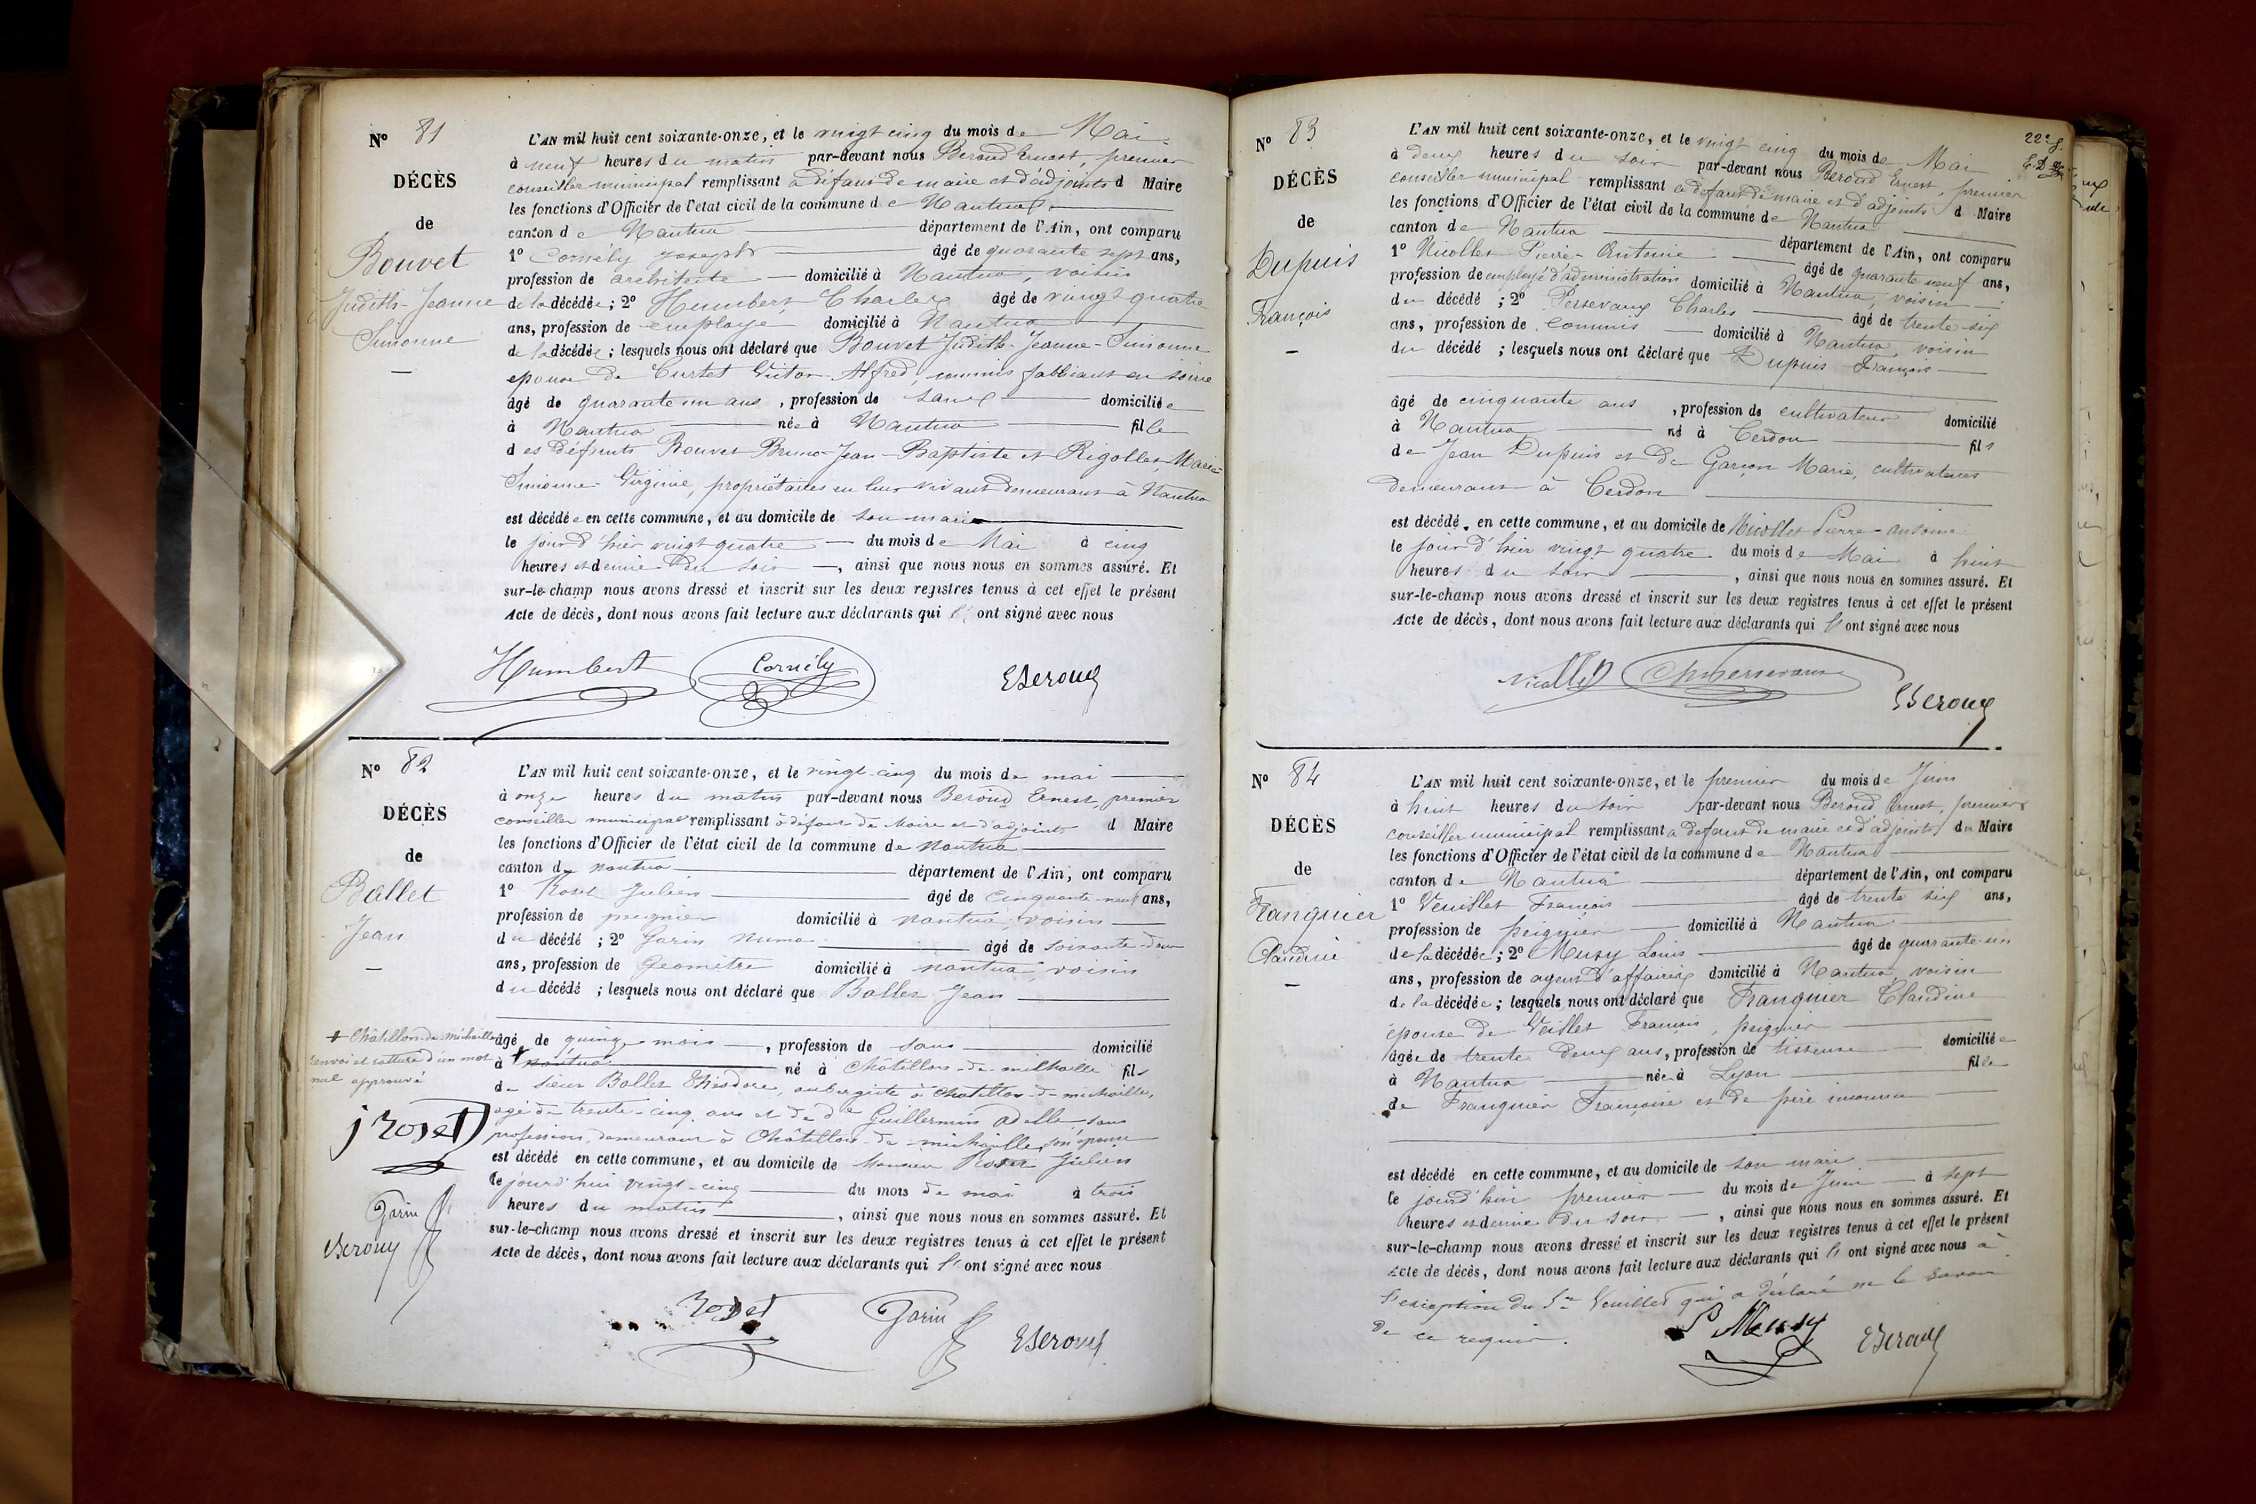 N° 81
DÉCÈS
de
Bouvet
Judith-Jeanne
Simonne
L'AN mil huit cent soixante-onze, et le vingt cinq du mois de Mai
à neuf heures du matin par-devant nous Beroud Ernest, premier
conseiller municipal remplissant à défaut de maire et d'adjoints d Maire
les fonctions d'Officier de l'état civil de la commune de Nantua
canton de Nantua département de l'Ain, ont comparu
1° Cornély Joseph âgé de quarante sept ans,
profession de architecte domicilié à Nantua, voisin
de la décédée ; 2° Humbert Charles âgé de vingt quatre
ans, profession de employé domicilié à Nantua
de la décédée ; lesquels nous ont déclaré que Bouvet Judith-Jeanne-Simonne
épouse de Curtet Victor-Alfred, commis fabricant en soierie
âgé de quarante un ans, profession de sans domiciliée
à Nantua née à Nantua fille
des défunts Bouvet Bruno-Jean-Baptiste et Rigollet Marie
Simonne-Virginie, propriétaires en leur vivant demeurant à Nantua
est décédée en cette commune, et au domicile de son mari
le jour d'hier vingt quatre du mois de Mai à cinq
heures et demie du soir, ainsi que nous nous en sommes assuré. Et
sur-le-champ nous avons dressé et inscrit sur les deux registres tenus à cet effet le présent
Acte de décès, dont nous avons fait lecture aux déclarants qui l' ont signé avec nous
Humbert Cornély EBeroud
N° 82
DÉCÈS
de
Ballet
Jean
L'AN mil huit cent soixante-onze, et le vingt-cinq du mois de mai
à onze heures du matin par-devant nous Beroud Ernest, premier
conseiller municipal remplissant à défaut de Maire et d'adjoints d Maire
les fonctions d'Officier de l'état civil de la commune de Nantua
canton de nantua département de l'Ain, ont comparu
1° Rozet Julien âgé de cinquante-neuf ans,
profession de peignier domicilié à nantua, voisin
du décédé ; 2° Garin Numa âgé de soixante-deux
ans, profession de Géomètre domicilié à nantua, voisin
du décédé ; lesquels nous ont déclaré que Ballet Jean
âgé de quinze mois, profession de sans domicilié
à + nantua né à Châtillon-de-michaille fils
de sieur Ballet Théodore, aubergiste à Chatillon-de-michaille,
agé de trente-cinq ans et de de Guillermin Adelle, sans
profession, demeurant à Châtillon-de-michaille, son épouse
est décédé en cette commune, et au domicile de Monsieur Rozet Julien
le jourd'hui vingt-cinq du mois de mai à trois
heures du matin, ainsi que nous nous en sommes assuré. Et
sur-le-champ nous avons dressé et inscrit sur les deux registres tenus à cet effet le présent
Acte de décès, dont nous avons fait lecture aux déclarants qui l' ont signé avec nous
+ Châtillon-de-Michaille
renvoi et rature d'un mot
nul approuvé
j Rozet
Garin
EBeroud
Rozet Garin EBeroud
N° 83
DÉCÈS
de
Dupuis
François
22e f.
L'AN mil huit cent soixante-onze, et le vingt cinq du mois de Mai
à deux heures du soir par-devant nous Beroud Ernest, premier
conseiller municipal remplissant à défaut de maire et d'adjoints d Maire
les fonctions d'Officier de l'état civil de la commune de Nantua
canton de Nantua département de l'Ain, ont comparu
1° Nicollet Pierre-Antoine âgé de quarante neuf ans,
profession de employé d'administration domicilié à Nantua, voisin
du décédé ; 2° Persevaux Charles âgé de trente six
ans, profession de Commis domicilié à Nantua, voisin
du décédé ; lesquels nous ont déclaré que Dupuis François
âgé de cinquante ans, profession de cultivateur domicilié
à Nantua né à Cerdon fils
de Jean Dupuis et de Garçon Marie, cultivateurs
demeurant à Cerdon
est décédé en cette commune, et au domicile de Nicollet Pierre-antoine
le jour d'hier vingt quatre du mois de Mai à huit
heures du soir, ainsi que nous nous en sommes assuré. Et
sur-le-champ nous avons dressé et inscrit sur les deux registres tenus à cet effet le présent
Acte de décès, dont nous avons fait lecture aux déclarants qui l' ont signé avec nous
Nicollet ChPersevaux EBeroud
N° 84
DÉCÈS
de
Franquier
Claudine
L'AN mil huit cent soixante-onze, et le premier du mois de Juin
à huit heures du soir par-devant nous Beroud Ernest, premier
conseiller municipal remplissant à défaut de maire et d'adjoints du Maire
les fonctions d'Officier de l'état civil de la commune de Nantua
canton de Nantua département de l'Ain, ont comparu
1° Veuillet François âgé de trente six ans,
profession de peignier domicilié à Nantua
de la décédée ; 2° Musy Louis âgé de quarante-un
ans, profession de agent d'affaires domicilié à Nantua, voisin
de la décédée ; lesquels nous ont déclaré que Franquier Claudine
épouse de Veillet François, peignier
âgée de trente deux ans, profession de tisseuse domiciliée
à Nantua née à Lyon fille
de Franquier Françoise et de père inconnu
est décédé en cette commune, et au domicile de son mari
le jourd'hui premier du mois de Juin à sept
heures et demie du soir, ainsi que nous nous en sommes assuré. Et
sur-le-champ nous avons dressé et inscrit sur les deux registres tenus à cet effet le présent
Acte de décès, dont nous avons fait lecture aux déclarants qui l' ont signé avec nous à
l'exception du Sr Veuillet qui a déclaré ne le savoir
de ce requis.
L Musy EBeroud